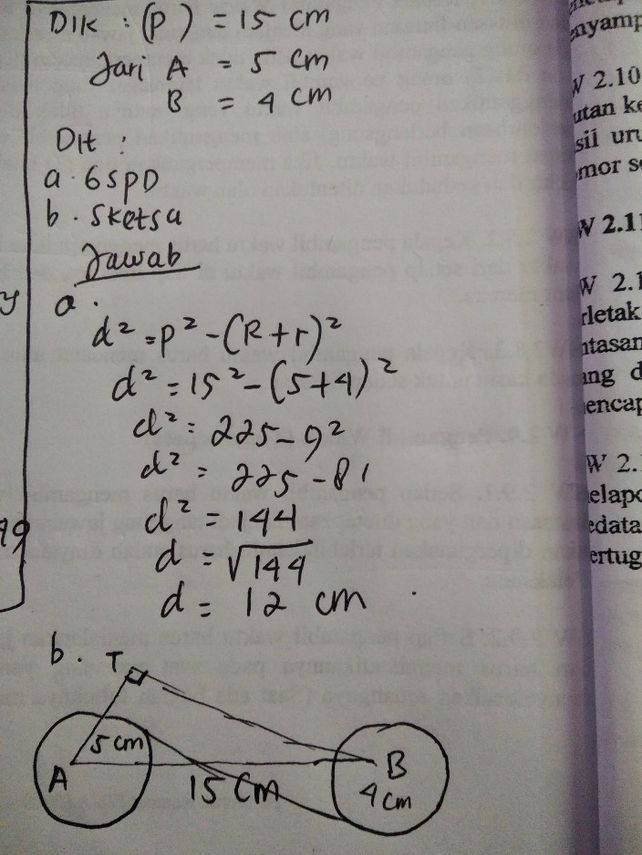 DIK : (P) = 15 cm
Jari A = 5 cm
B = 4 cm
Dit :
a. GSPD
b. Sketsa
Jawab
y
a.
d² = P² - (R+r)²
d² = 15² - (5+4)²
d² = 225 - 9²
d² = 225 - 81
d² = 144
d = √144
d = 12 cm
b.
T
5 cm
A
15 cm
B
4 cm
enyamp
W 2.10
utan ke
sil uru
omor se
W 2.11
W 2.1
rletak
ntasan
ang d
encap
W 2.
elapo
edata
ertug